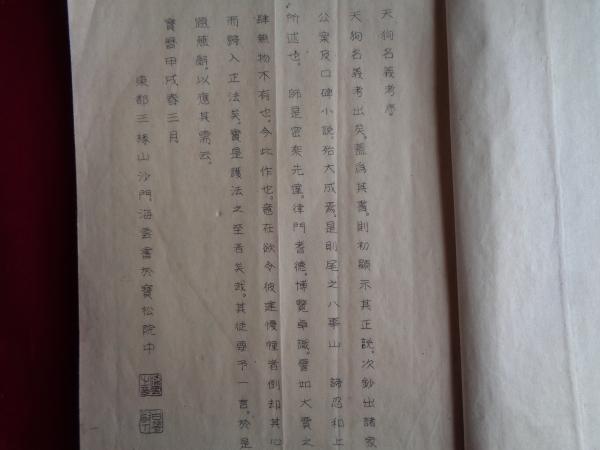 天狗名義考序
天狗名義考出矣。蓋為其書。則初顯示其正說。次鈔出諸家
公案及口碑小說。殆大成焉。是則尾之八事山 諦忍和上
所述也。 師是密乘先達。律門耆德。博覽卓識。譬如大賈之
肆無物不有也。今此作也。意在欲令彼建慢幢者倒却其心
而歸入正法矣。實是護法之至者矣哉。其徒要予一言。於是
綴蕪辭。以應其需云。
寶曆甲戌春三月
東都三緣山沙門海雲書於寶松院中